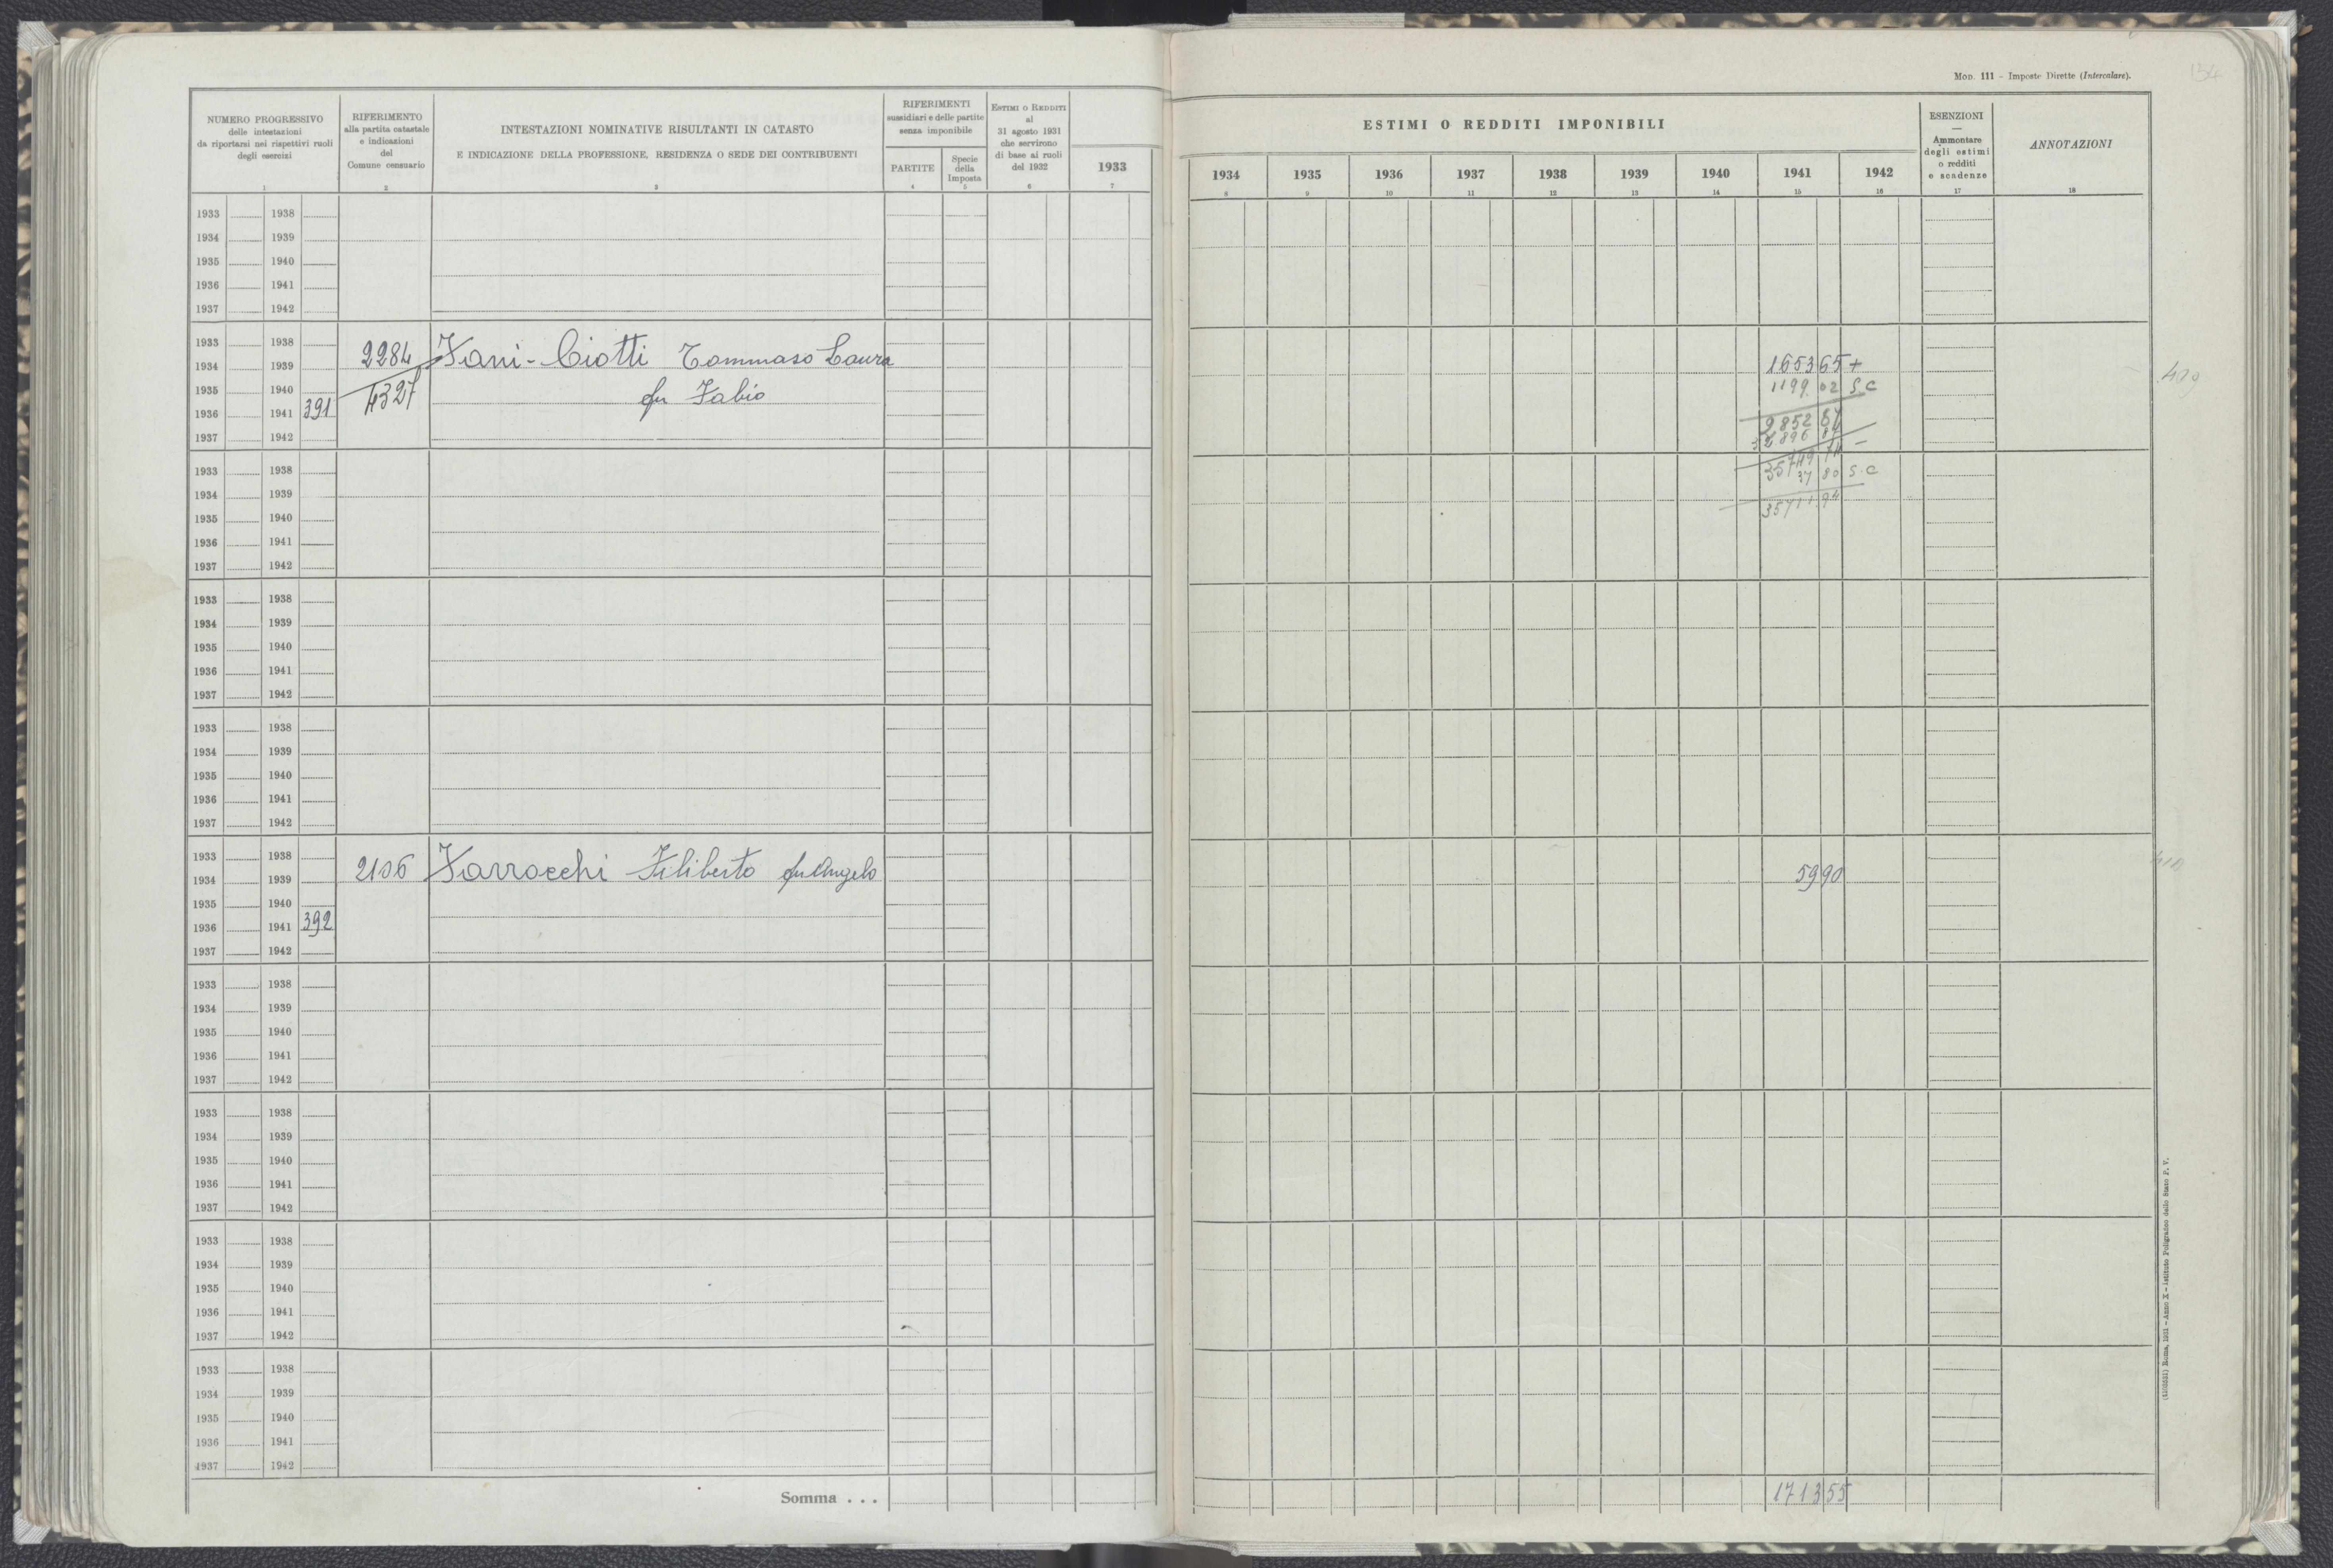 Mod. 111 - Imposte Dirette (Intercalare).
134
NUMERO PROGRESSIVO
delle intestazioni
da riportarsi nei rispettivi ruoli
degli esercizi
1
RIFERIMENTO
alla partita catastale
e indicazioni
del
Comune censuario
2
INTESTAZIONI NOMINATIVE RISULTANTI IN CATASTO
E INDICAZIONE DELLA PROFESSIONE, RESIDENZA O SEDE DEI CONTRIBUENTI
3
RIFERIMENTI
sussidiari e delle partite
senza imponibile
PARTITE
4
Specie
della
Imposta
5
ESTIMI O REDDITI
al
31 agosto 1931
che servirono
di base ai ruoli
del 1932
6
1933
7
ESTIMI O REDDITI IMPONIBILI
1934 1935 1936 1937 1938 1939 1940 1941 1942
8 9 10 11 12 13 14 15 16
ESENZIONI
—
Ammontare
degli estimi
o redditi
e scadenze
17
ANNOTAZIONI
18
1933 1938
1934 1939
1935 1940
1936 1941
1937 1942
1933 1938
1934 1939 2284 Fani-Ciotti Tommaso Laura 165365+
1935 1940 4327 fu Fabio 1199 02 S.C
1936 1941 391 2852 87
1937 1942 32896 87
1933 1938 35749 74 -
37 80 S.C
1934 1939 35711 94
1935 1940
1936 1941
1937 1942
1933 1938
1934 1939
1935 1940
1936 1941
1937 1942
1933 1938
1934 1939
1935 1940
1936 1941
1937 1942
1933 1938
1934 1939 2106 Farrocchi Filiberto fu Angelo 5990
1935 1940
1936 1941 392
1937 1942
1933 1938
1934 1939
1935 1940
1936 1941
1937 1942
1933 1938
1934 1939
1935 1940
1936 1941
1937 1942
1933 1938
1934 1939
1935 1940
1936 1941
1937 1942
1933 1938
1934 1939
1935 1940
1936 1941
1937 1942
Somma . . . 171355
Roma, 1931 - Anno X - Istituto Poligrafico dello Stato P. V.